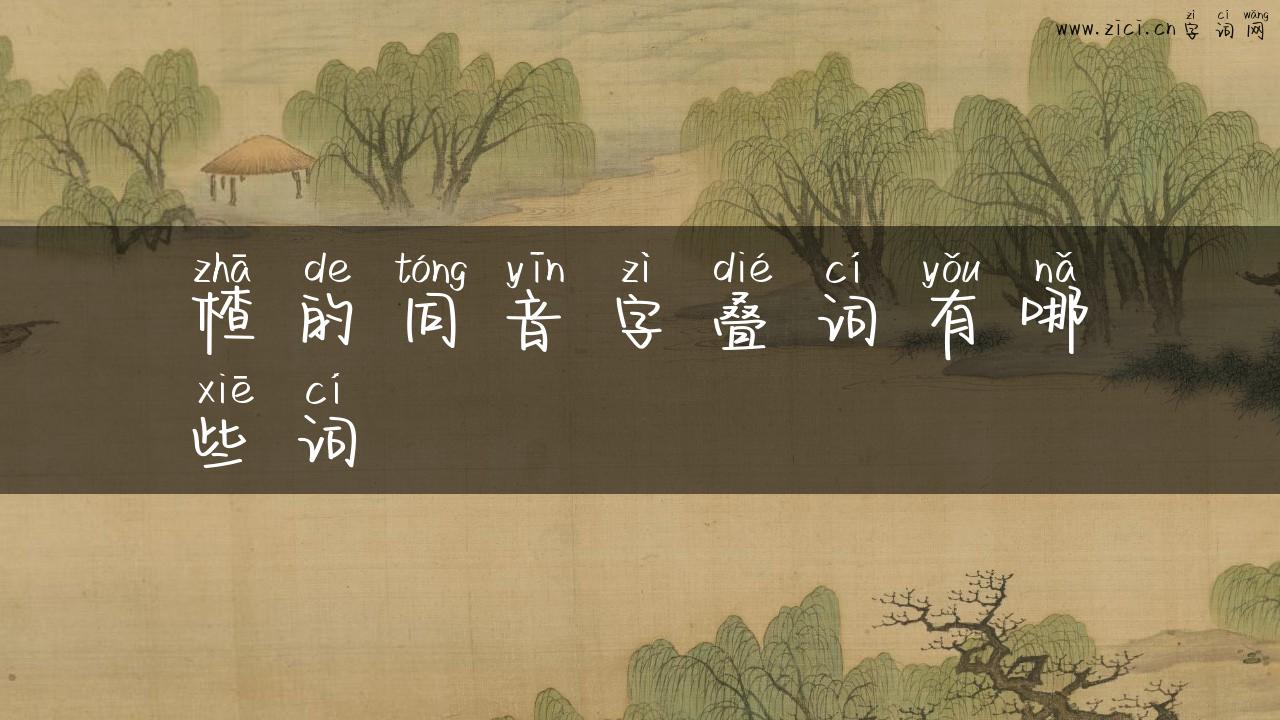 zì cí wǎng
www.zici.cn 字词网
zhā de tóng yīn zì dié cí yǒu nǎ
楂的同音字叠词有哪
xiē cí
些词